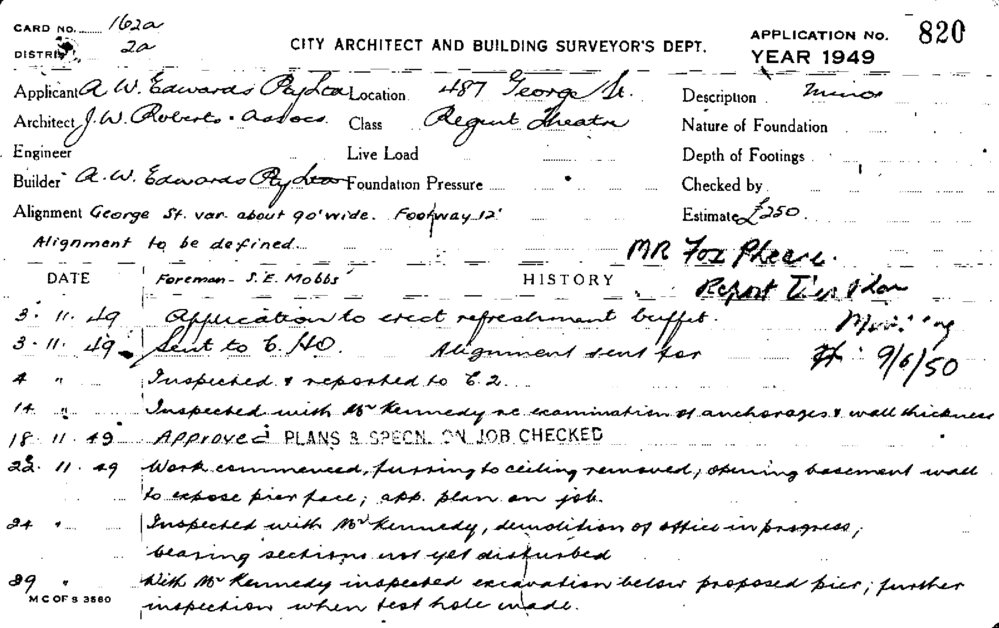 CARD NO. 162a
DISTRICT 2a
CITY ARCHITECT AND BUILDING SURVEYOR'S DEPT.
APPLICATION NO. 820
YEAR 1949
Applicant A. W. Edwards Pty Ltd Location 487 George St. Description Minor
Architect J. W. Roberts & Assocs Class Regent Theatre Nature of Foundation
Engineer Live Load Depth of Footings
Builder A. W. Edwards Pty Ltd Foundation Pressure Checked by
Alignment George St. var. about 90' wide. Footway 12' Estimate £250
Alignment to be defined.
MR Fox Please
Report
DATE Foreman - S. E. Mobbs HISTORY
3. 11. 49 Application to erect refreshment buffet.
3. 11. 49 Sent to C.H.O. Alignment sent for 9/6/50
4 " Inspected & reported to C.2.
14 " Inspected with Mr Kennedy re examination of anchorages & wall thickness
18. 11. 49 Approved PLANS & SPECN. ON JOB CHECKED
22. 11. 49 Work commenced, furring to ceiling removed; opening basement wall
to expose pier face; app. plan on job.
24 " Inspected with Mr Kennedy, demolition of office in progress;
bearing sections not yet disturbed
29 " With Mr Kennedy inspected excavation below proposed pier; further
M C OF S 3560 inspection when test hole made.